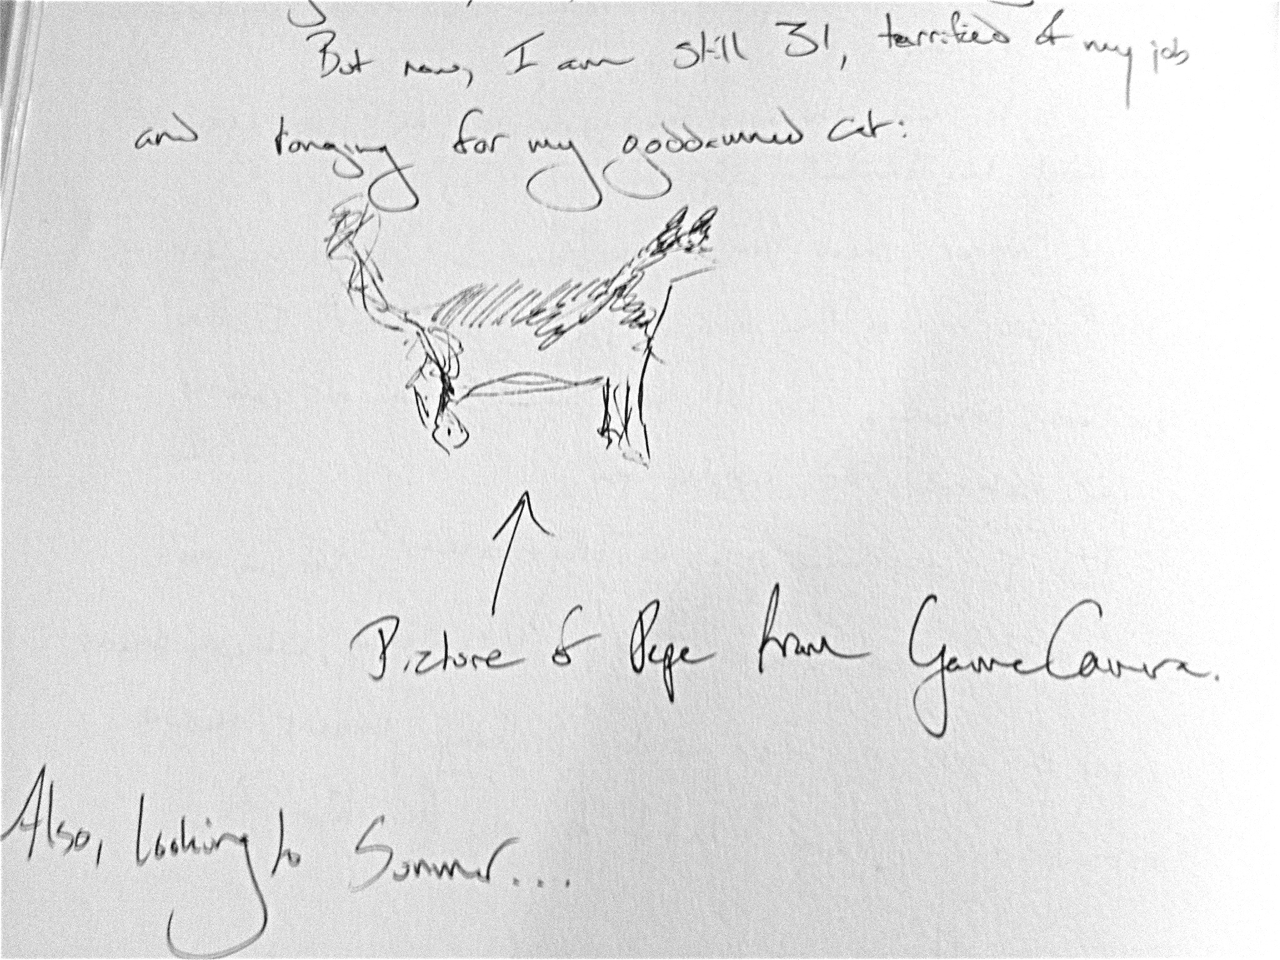 But now, I am still 31, terrified of my job
and longing for my goddamned cat:
Picture of Pepe from GameCamera.
Also, looking to Summer...